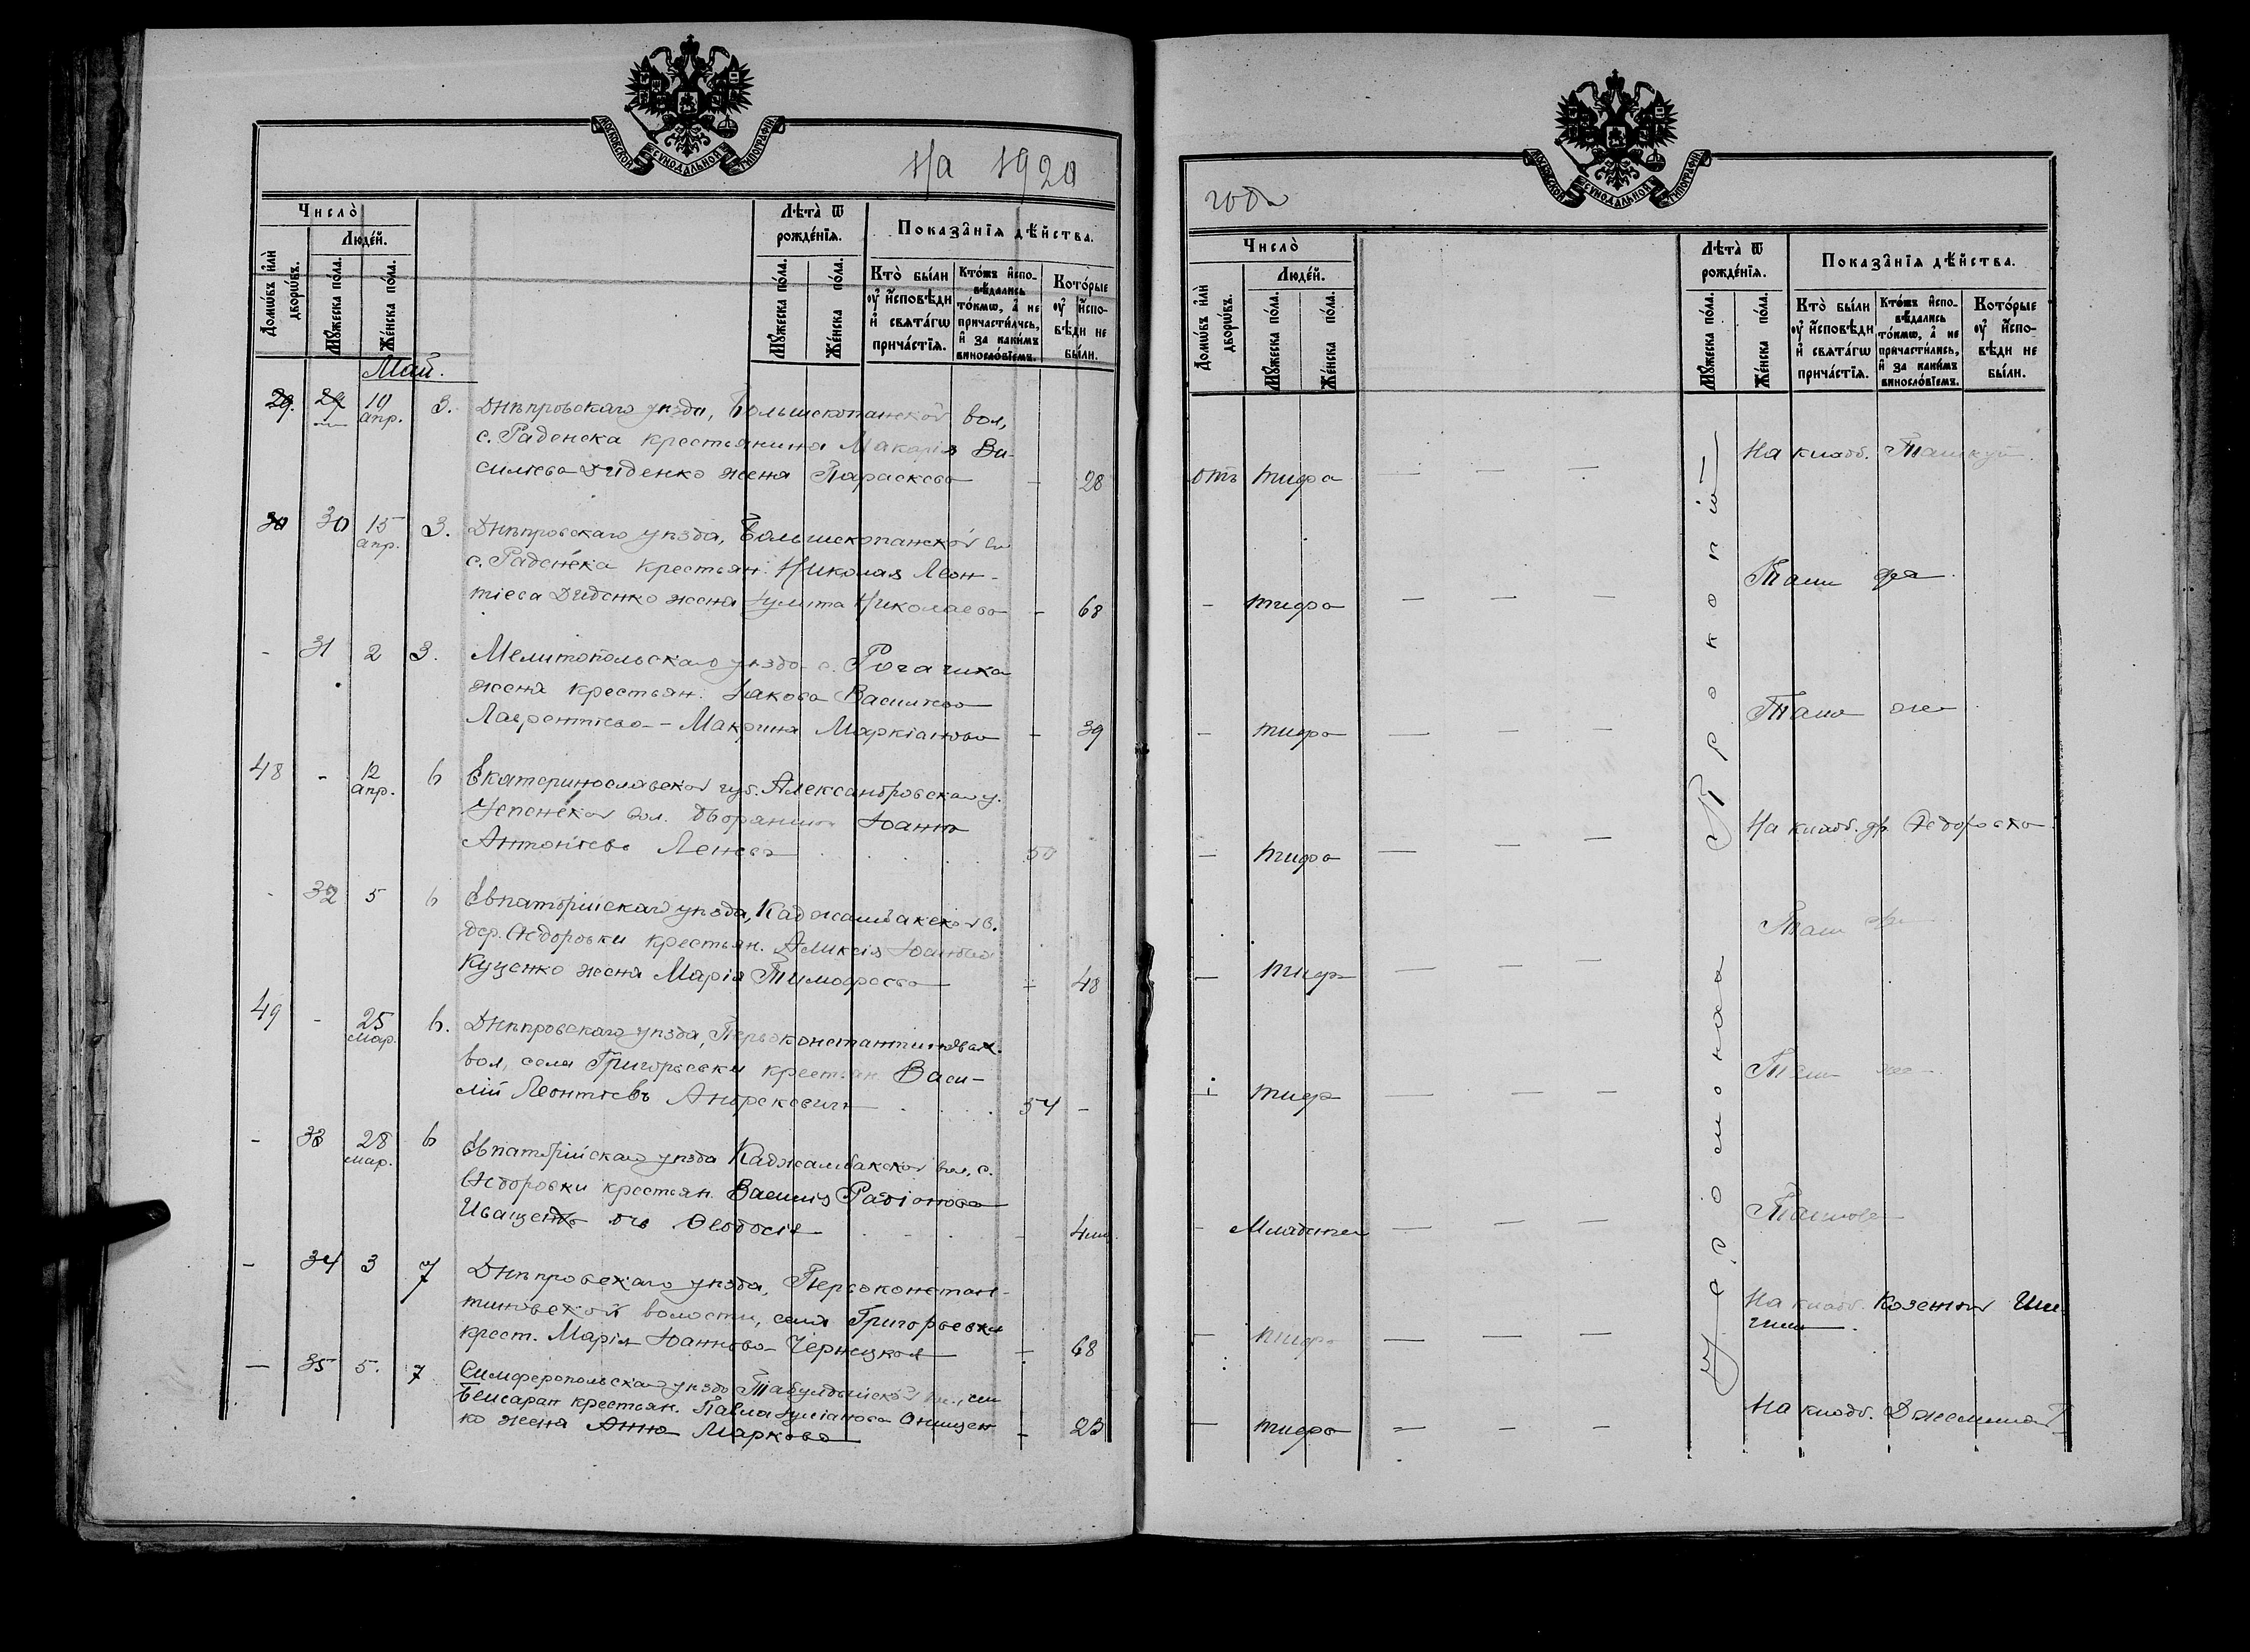 МОСКОВСКОЙ СУНОДАЛЬНОЙ ТИПОГРАФІИ
На 1920
Число̀
Людéй.
Домѡ́въ и҆лѝ дворѡ́въ.
Мꙋ́жеска по́ла.
Же́нска по́ла.
Лѣта̀ ѿ рожде́нїѧ.
Мꙋ́жеска по́ла.
Же́нска по́ла.
Показа̂нїѧ дѣ́йства.
Кто̀ бы́ли оу҆ и҆сповѣ́ди и҆ свѧта́гѡ прича́стїѧ.
Кто́жъ и҆сповѣ́дались то́кмѡ, а҆ не причасти́лись, и҆ за каки́мъ винослѡ́вїемъ.
Кото́рые оу҆ и҆сповѣ́ди не бы́ли.
Май.
29. 29 19 апр. 3. Днѣпровскаго уѣзда, Большекопанской вол,
с. Раденска крестьянина Макарія Ва-
сильева Диденко жена Параскева — 28
30 30 15 апр. 3. Днѣпровскаго уѣзда, Большекопанской
с. Раденска крестьян. Николая Леон-
тіева Диденко жена Іулита Николаева — 68
- 31 2 3. Мелитопольскаго уѣзда с. Рогачика
жена крестьян. Іакова Васильева
Лаврентьева - Макрина Маркіанова — 39
48 - 12 апр. 6 Екатеринославской губ. Александровскаго у.
Успенской вол. Дворянин Іоанн
Антоніевъ 50
- 32 5 6 Евпаторійскаго уѣзда,
дер. Ѳедоровки крестьян. Алексія Іоаннова
Куценко жена Марія Тимофеева — 48
49 - 25 мар. 6. Днѣпровскаго уѣзда, Первоконстантиновск.
вол, села Григорьевки крестьян Васи-
лій Леонтіевъ 54 -
- 33 28 мар. 6 Евпаторійскаго уѣзда вол. с.
Ѳедоровки крестьян. Василія Радіонова
Иващенко дочь Ѳеодосія - 4 м.
- 34 3 7 Днѣпровскаго уѣзда, Первоконстан-
тиновской волости, села Григорьевки
крест. Марія Іоаннова 68
- 35 5. 7 Симферопольскаго уѣзда Табулдынской
крестьян. Павла Іуліанова Онищен-
ко жена Анна Маркова - 23
МОСКОВСКОЙ СУНОДАЛЬНОЙ ТИПОГРАФІИ
года
Число̀
Людéй.
Домѡ́въ и҆лѝ дворѡ́въ.
Мꙋ́жеска по́ла.
Же́нска по́ла.
Лѣта̀ ѿ рожде́нїѧ.
Мꙋ́жеска по́ла.
Же́нска по́ла.
Показа̂нїѧ дѣ́йства.
Кто̀ бы́ли оу҆ и҆сповѣ́ди и҆ свѧта́гѡ прича́стїѧ.
Кто́жъ и҆сповѣ́дались то́кмѡ, а҆ не причасти́лись, и҆ за каки́мъ винослѡ́вїемъ.
Кото́рые оу҆ и҆сповѣ́ди не бы́ли.
отъ тифа — — — На кладб.
- тифа — — — Там же
- тифа — — — Там же
- тифа — — — На кладб. др. Ѳедоровка
- тифа — — — Там же
- тифа — — — Там же
- Младенч — — — Там же
- тифа — — — На кладб.
- тифа — — — На кладб.
Іеромонах Прокопій